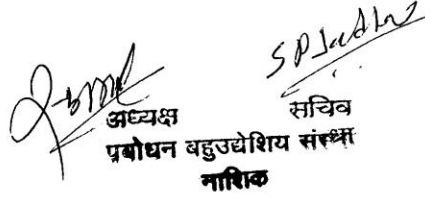 S P Jadhav
अध्यक्ष सचिव
प्रबोधन बहुउद्येशिय संस्था
नाशिक